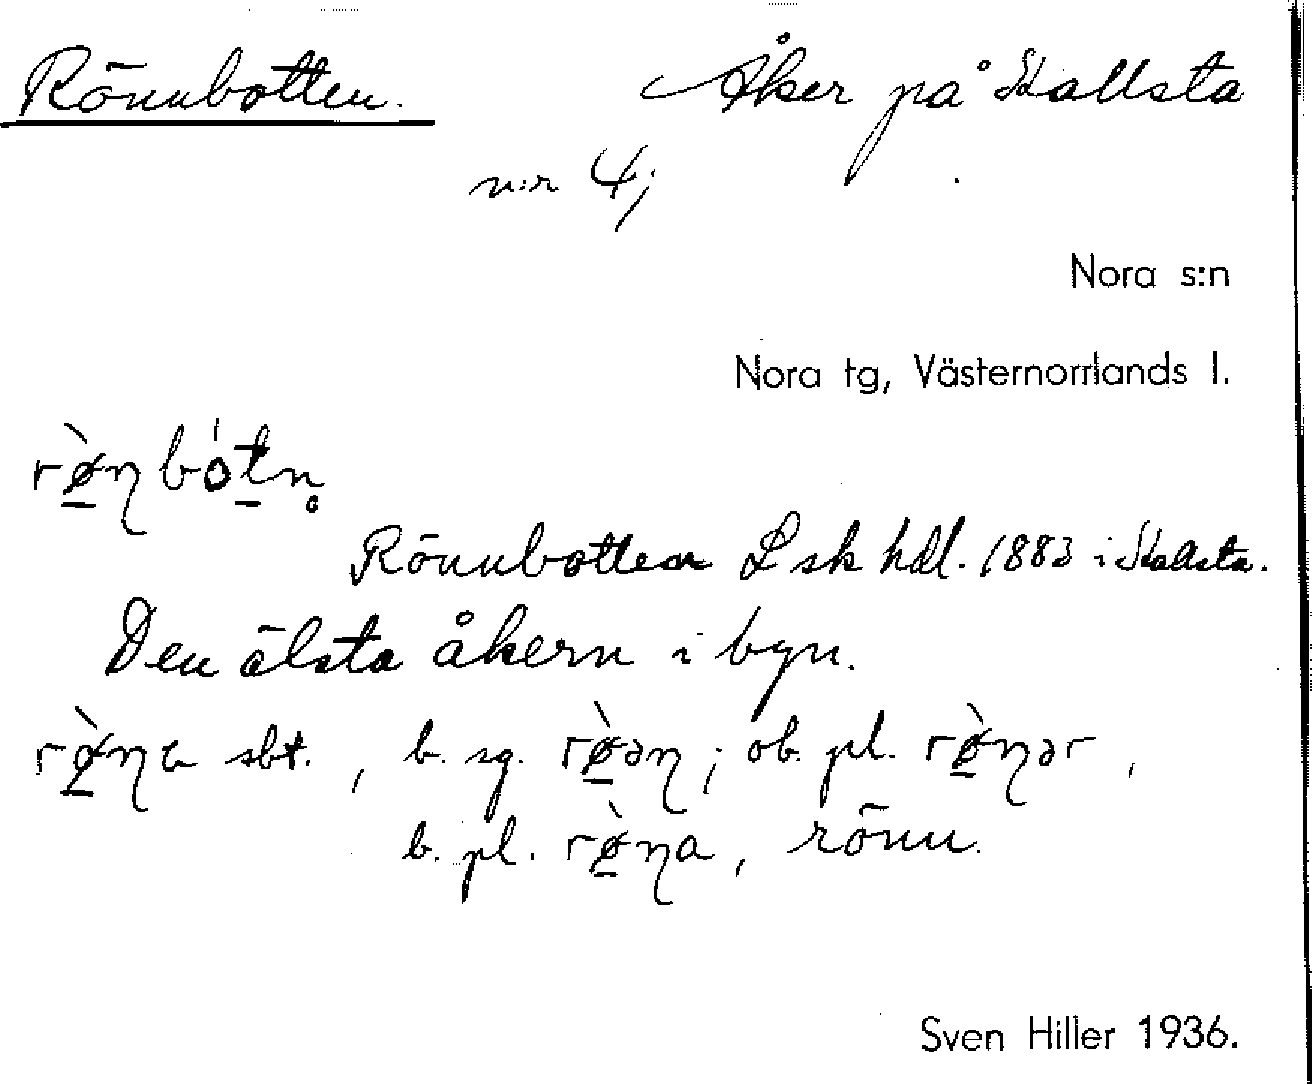 Rönnbotten. Åker på Skallsta
n:r 4;
Nora s:n
Nora tg, Västernorrlands l.
rø̀ɳbót̲n̥
Rönnbotten L sk hdl. 1883 i Skallsta.
Den älsta åkern i byn.
rø̀ɳa sbt., b. sg. rø̀əɳ; ob. pl. rø̀ɳər,
b. pl. rø̀ɳa, rönn.
Sven Hiller 1936.